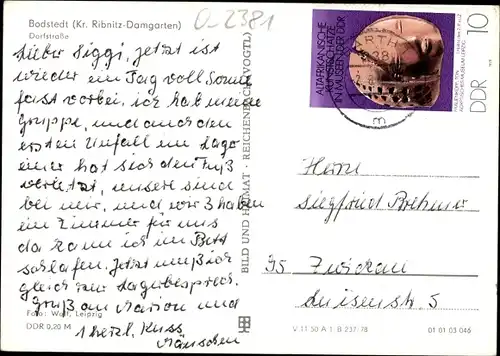 Bodstedt (Kr. Ribnitz-Damgarten)
Dorfstraße
O-2381
Lieber Siggi, jetzt ist
wieder ein Tag voll Sonne
fast vorbei, ich hab meine
Gruppe, und auch den
ersten Unfall im Lager
einer hat sich den Fuß
verletzt, unsere sind
bei mir, und wir 3 haben
ein Zimmer für uns
da kann ich im Bett
schlafen. Jetzt muß ich
gleich zur Lagerbesprech.
Gruß an Marion und
1 herzl. Kuss
Mäuschen
Foto: Wolf, Leipzig
DDR 0,20 M
BILD UND HEIMAT · REICHENBACH (VOGTL)
ALTAFRIKANISCHE
KUNSTSCHÄTZE
IN MUSEEN DER DDR
10
DDR
Herrn
Siegfried Brehmer
95 Zwickau
Luisenstr. 5
V 11 50 A 1 B 237/78
01 01 03 046